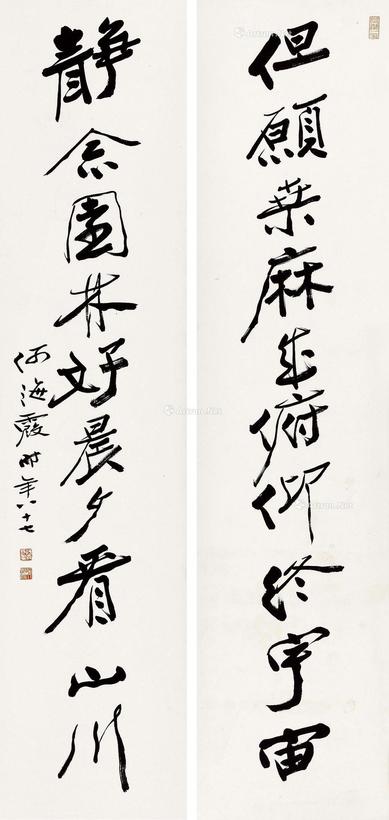 但願桑麻成俯仰終宇宙
靜念園林好晨夕看山川
何海霞時年八十七